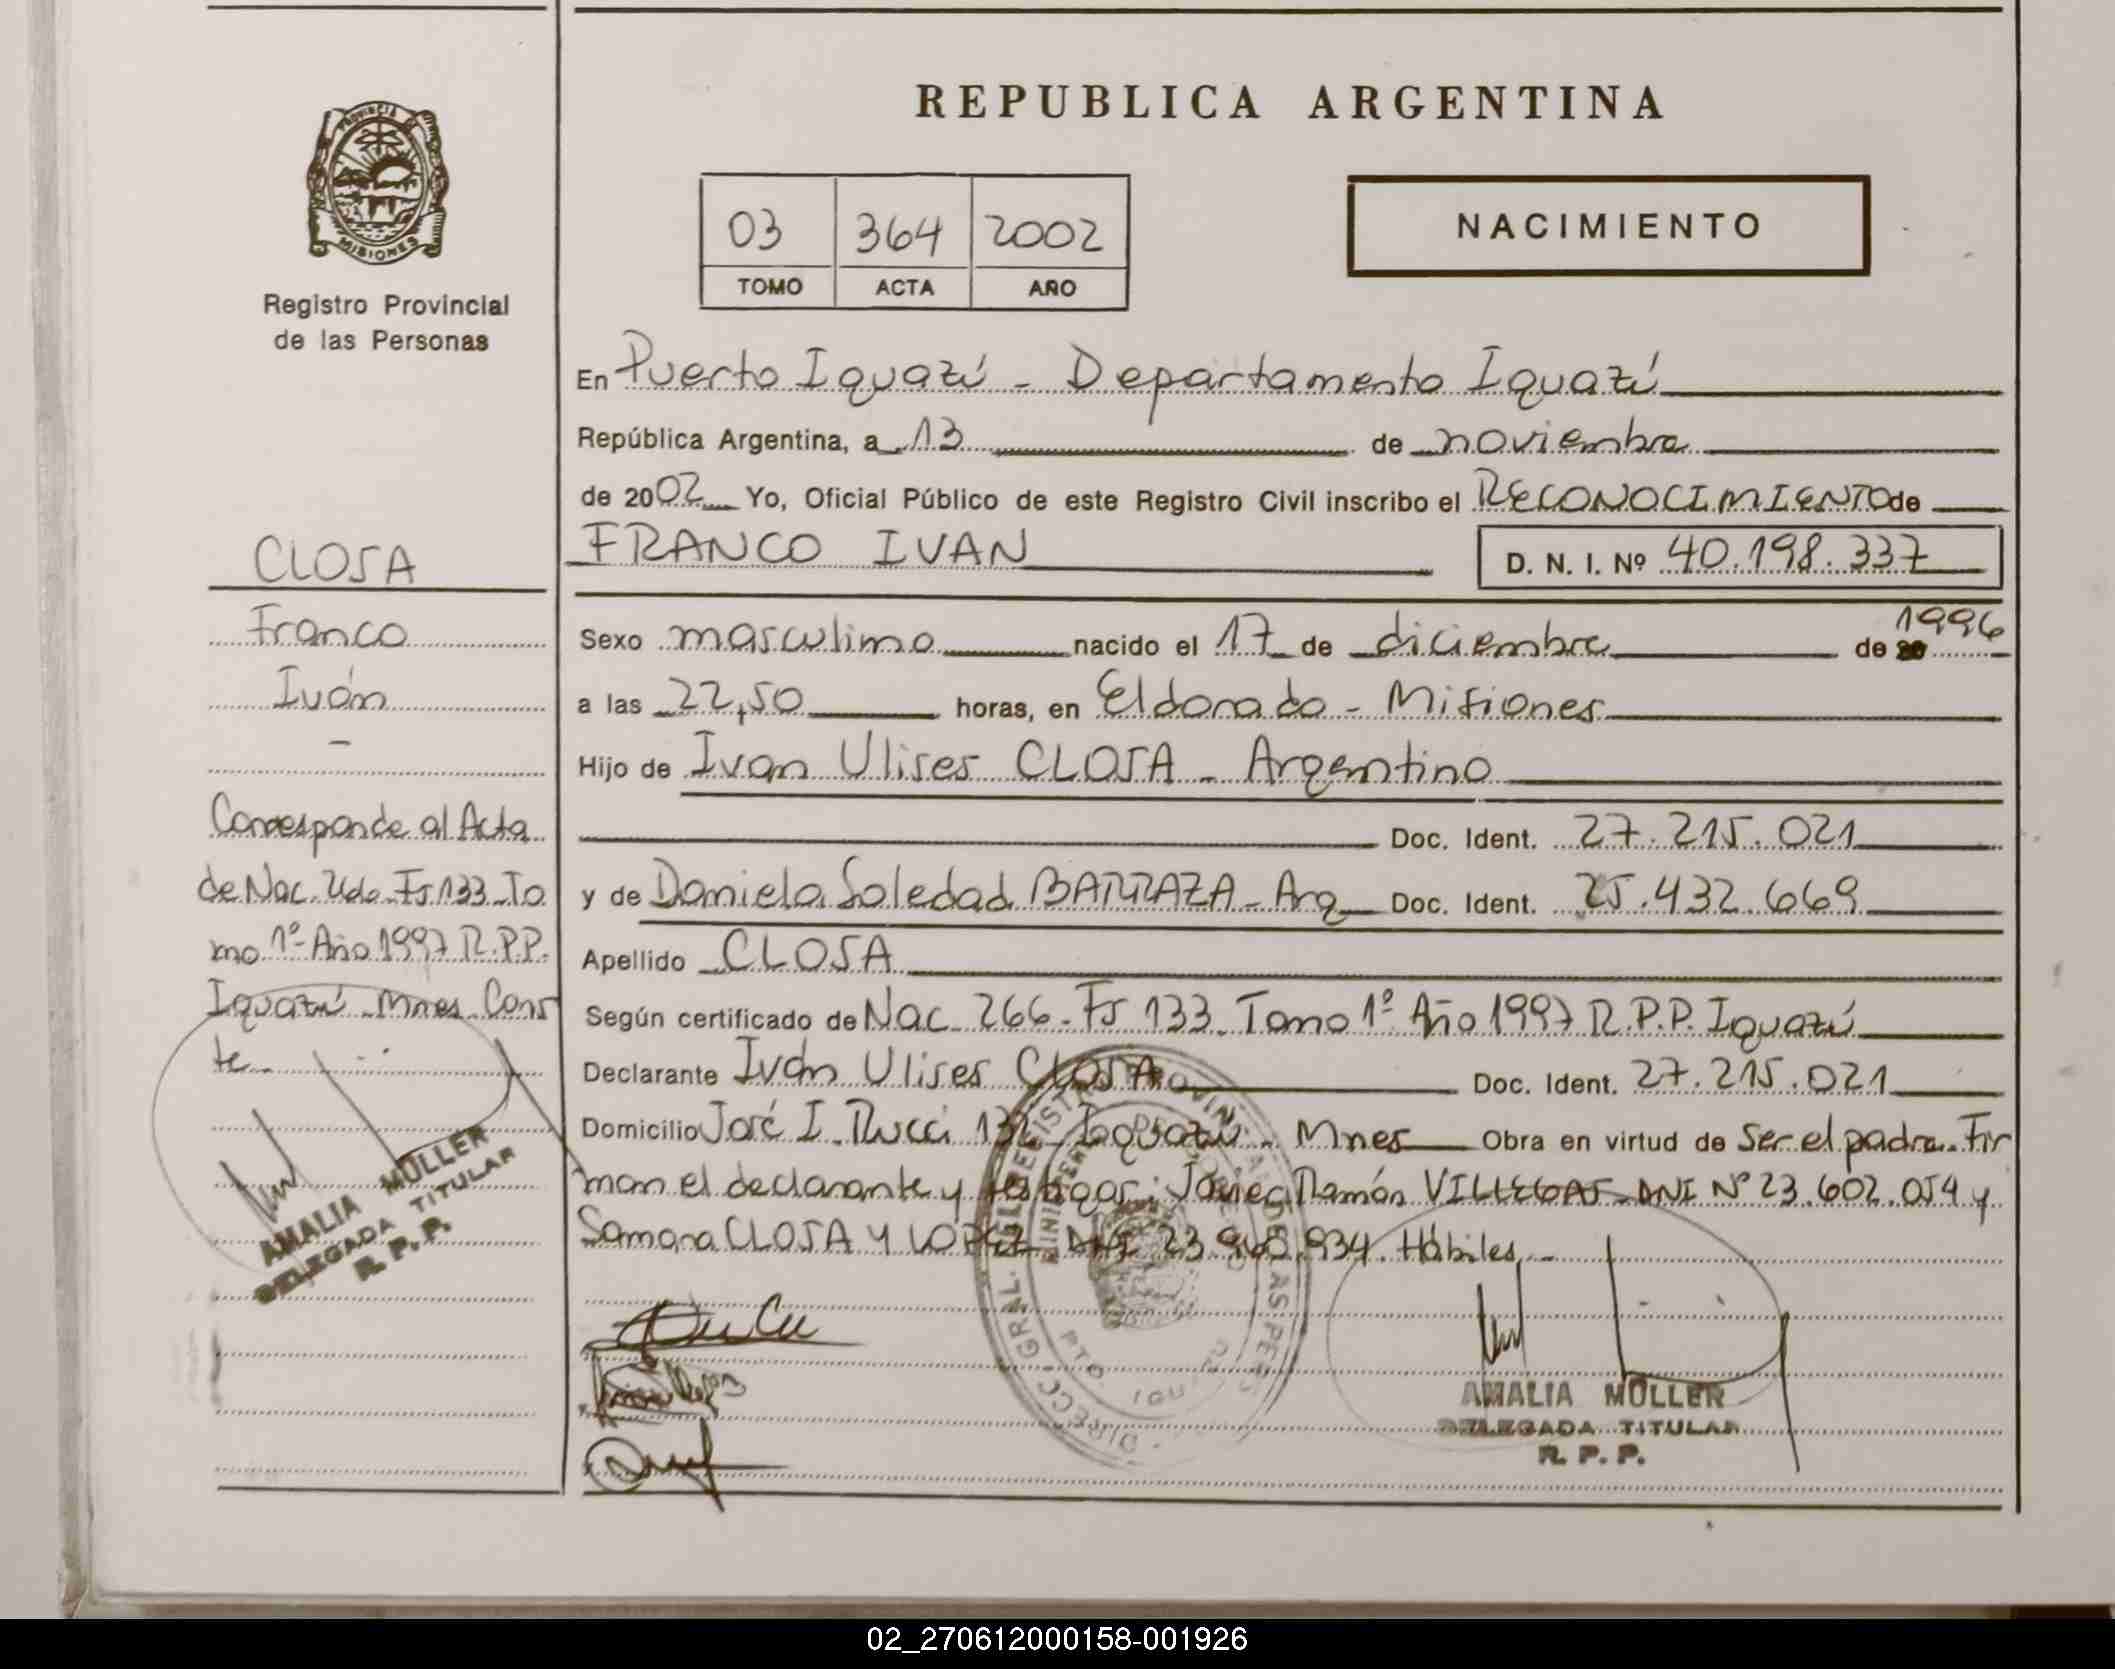 REPUBLICA ARGENTINA
PROVINCIA DE
MISIONES
Registro Provincial
de las Personas
03 364 2002
TOMO ACTA AÑO
NACIMIENTO
En Puerto Iguazú - Departamento Iguazú
República Argentina, a 13 de noviembre
de 2002 Yo, Oficial Público de este Registro Civil inscribo el RECONOCIMIENTO de
FRANCO IVAN
D. N. I. Nº 40.198.337
Sexo masculino nacido el 17 de diciembre de 1996
a las 22,50 horas, en Eldorado - Misiones
Hijo de Ivan Ulises CLOSA - Argentino
Doc. Ident. 27.215.021
y de Daniela Soledad BARRAZA - Arg Doc. Ident. 25.432.669
Apellido CLOSA
Según certificado de Nac. 266 - Fs 133 - Tomo 1º Año 1997 R.P.P. Iguazú
Declarante Iván Ulises CLOSA Doc. Ident. 27.215.021
Domicilio José I. Rucci 132 - Iguazú - Mnes Obra en virtud de Ser el padre. Fir
man el declarante y testigos: Javier Ramón VILLEGAS - DNI Nº 23.602.054 y
Samara CLOSA Y LOPEZ DNI 23 934. Hábiles.-
CLOSA
Franco
Iván
-
Corresponde al Acta
de Nac. Fs 133 - To
mo 1º Año 1997 R.P.P.
Iguazú - Mnes. Cons
te.-
AMALIA MÜLLER
DELEGADA TITULAR
R. P. P.
AMALIA MÜLLER
DELEGADA TITULAR
R. P. P.
DIRECC. GRAL. DEL REGISTRO PROVINCIAL DE LAS PERS
PTO. IGUAZU
02_270612000158-001926